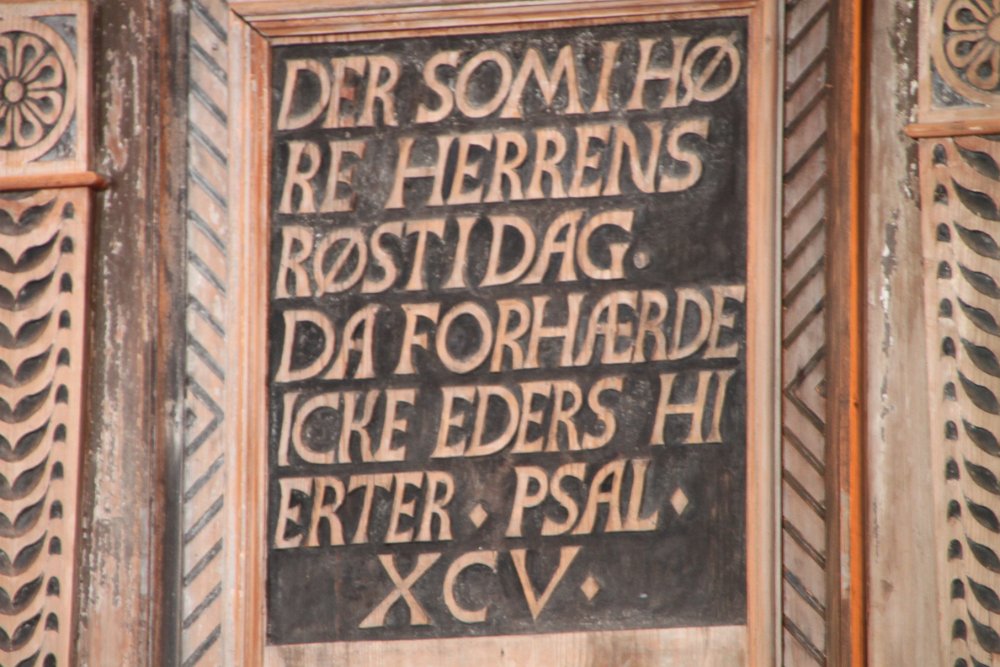 DER SOM I HØ
RE HERRENS
RØST I DAG.
DA FORHÆRDE
ICKE EDERS HI
ERTER · PSAL ·
XCV ·